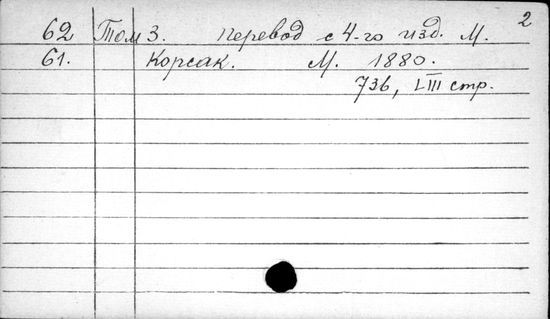 2
62 Том 3. Перевод с 4-го изд. М.
61. Корсак. М. 1880.
736, LIII стр.